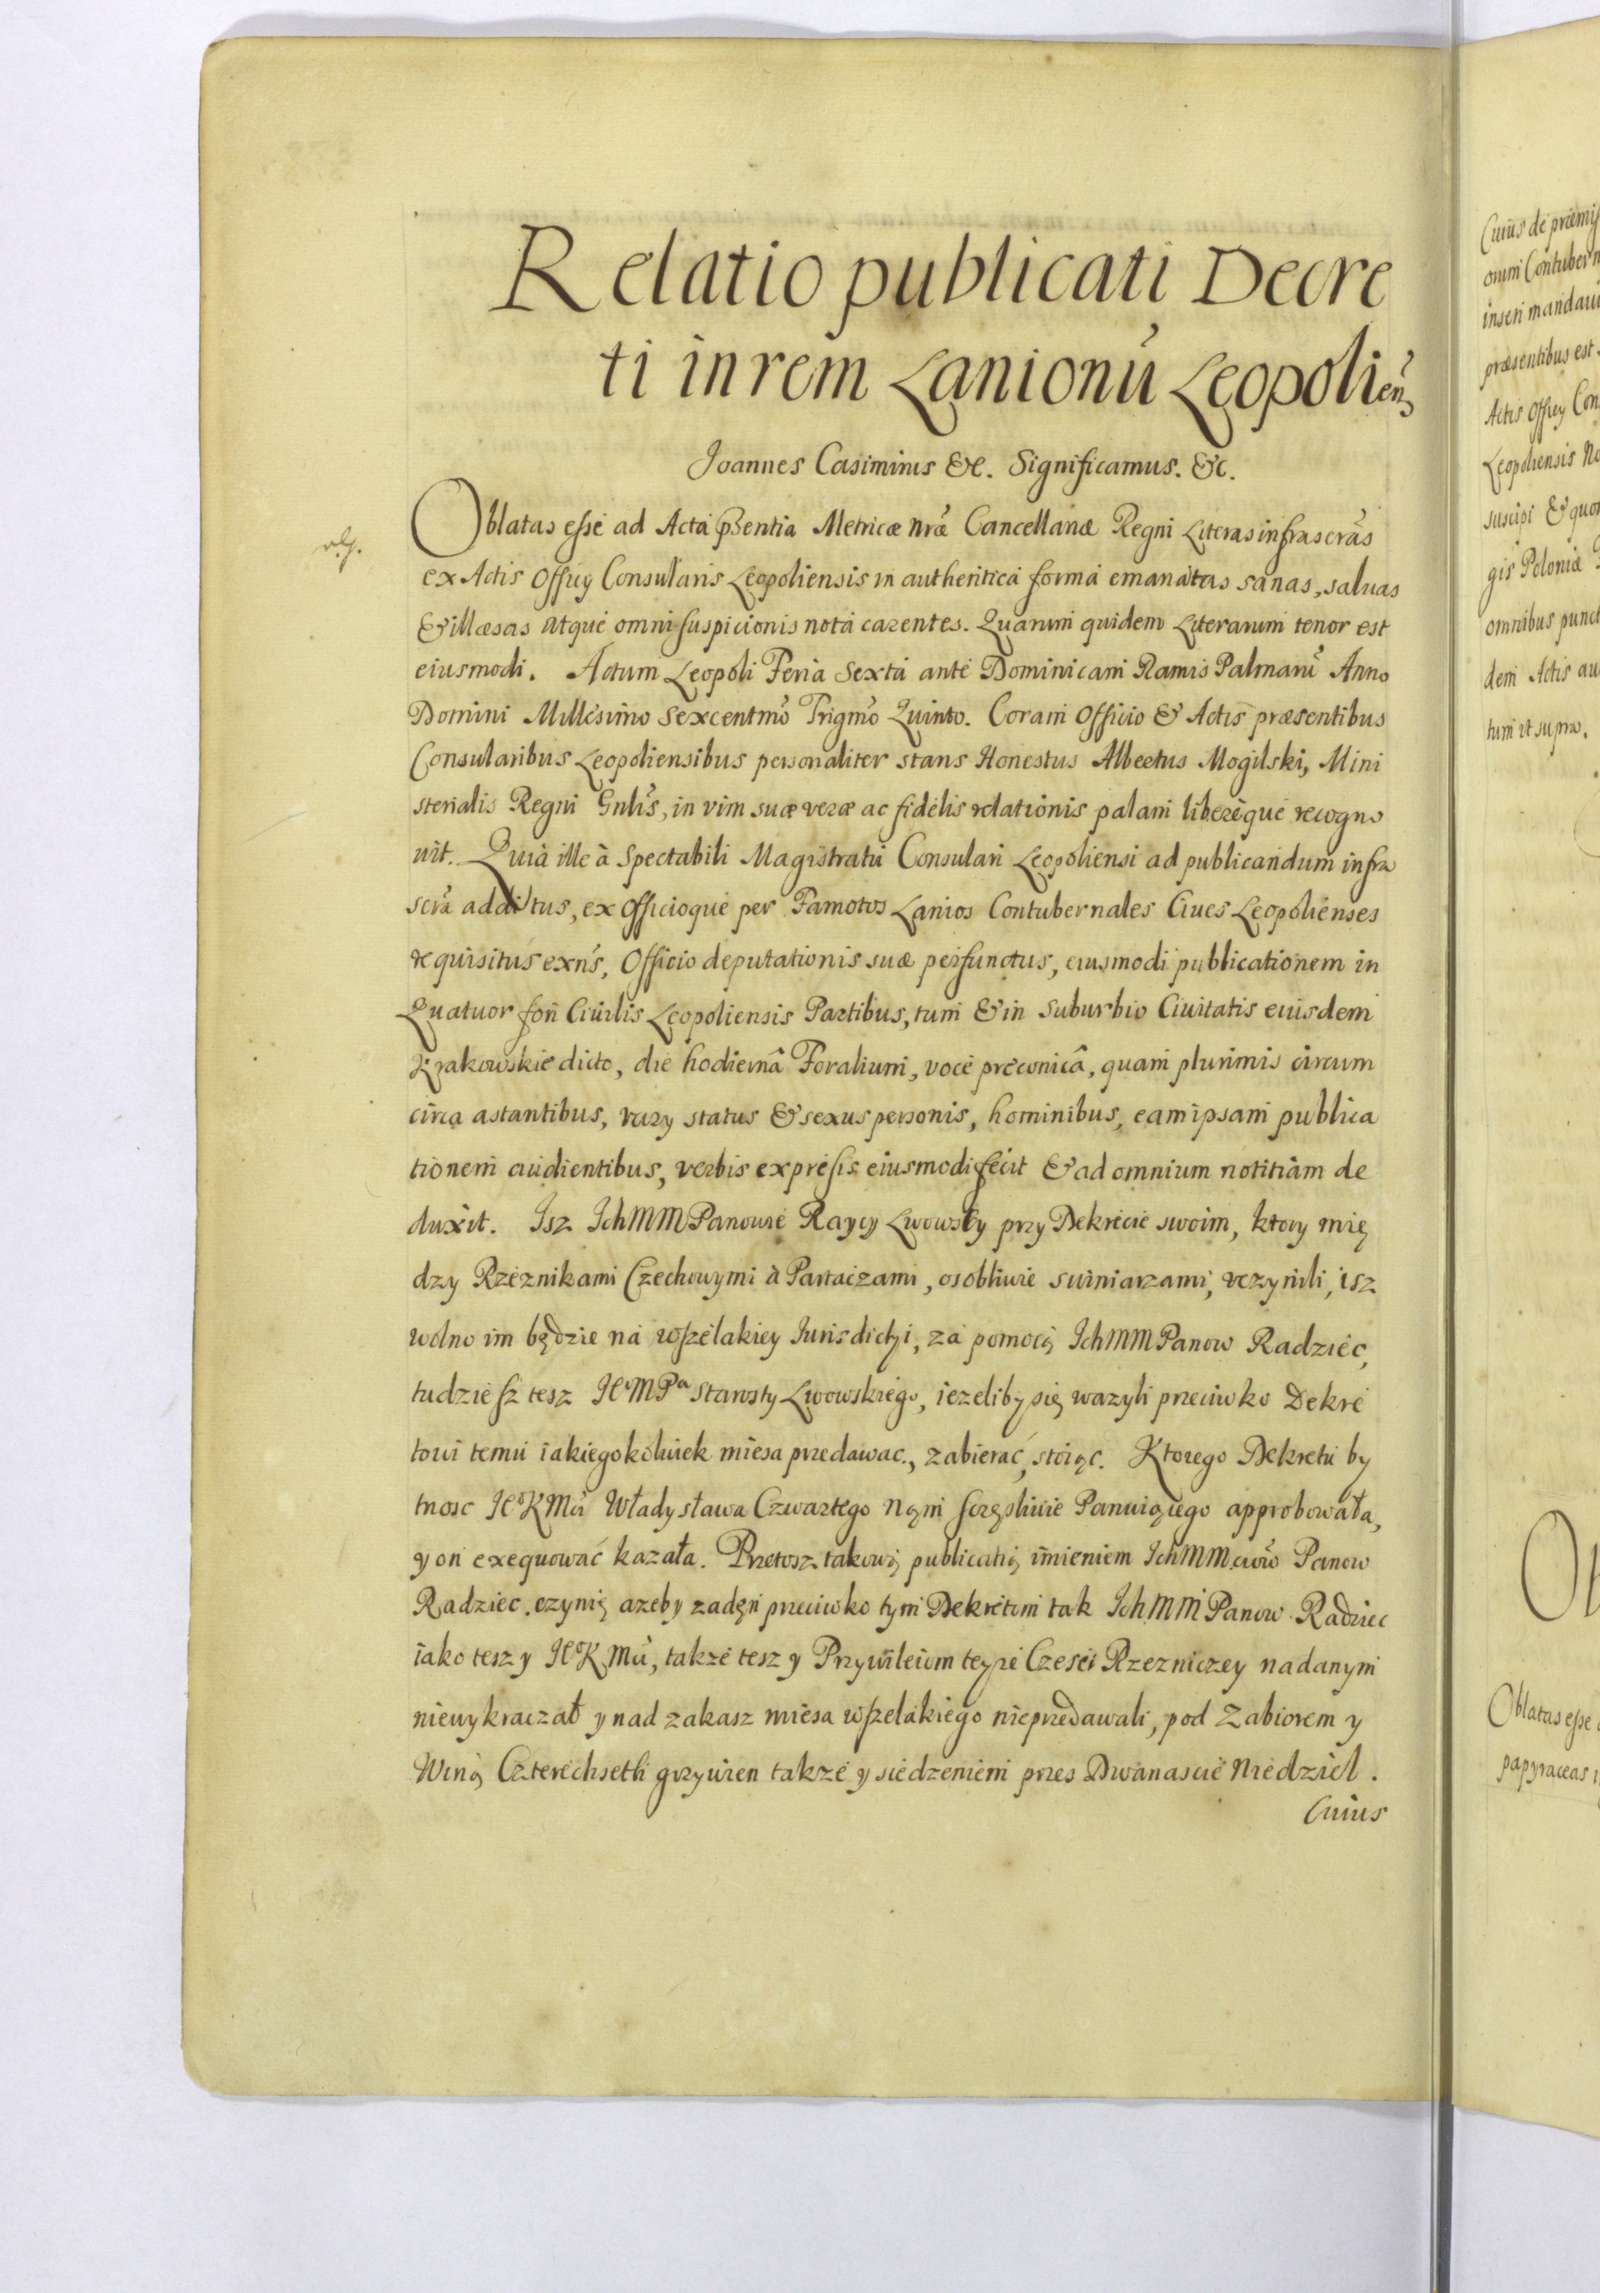 Relatio publicati Decre
ti in rem Lanionũ Leopolien̉
Joannes Casimirus &c. Significamus. &c.
Oblatas esse ad Acta pñsentia Metricæ nrẽ Cancellariæ Regni Literas infrascrãs
ex Actis Officÿ Consularis Leopoliensis in authentica forma emanatas sanas, saluas
& illæsas atque omni suspicionis nota carentes. Quarum quidem Literarum tenor est
eiusmodi. Actum Leopoli Feria Sexta ante Dominicam Ramis Palmarũ Anno
Domini Millesimo Sexcentmõ Trigmõ Quinto. Coram Officio & Actis præsentibus
Consularibus Leopoliensibus personaliter stans Honestus Albertus Mogilski, Mini
sterialis Regni Gnlis̃, in vim suæ veræ ac fidelis relationis palam libereque recogno
uit. Quia ille à Spectabili Magistratu Consulari Leopoliensi ad publicandum infra
scrã additus, ex Officioque per Famotos Lanios Contubernales Ciues Leopolienses
requisitus exñs, Officio deputationis suæ perfunctus, eiusmodi publicationem in
Quatuor fori Ciuilis Leopoliensis Partibus, tum & in Suburbio Ciuitatis eiusdem
Krakowskie dicto, die hodiernâ Foralium, voce prẽconicâ, quam plurimis circum
circa astantibus, varÿ status & sexus personis, hominibus, eam ipsam publica
tionem audientibus, verbis expressis eiusmodi fecit & ad omnium notitiam de
duxit. Isz IchMMPanowie Raycy Lwowscy przy Dekrecie swoim, ktory mię
dzy Rzeznikami Czechowymi à Partaczami, osobliwie swiniarzami, vczynili, isz
wolno im będzie na wszelakiey Jurisdictyi, za pomocą IchMMPanow Radziec,
tudziesz tesz JeMPa Starosty Lwowskiego, iezeliby się wazyli przeciwko Dekre
towi temu iakiegokolwiek miesa przedawac, zabierać, stoiąc. Ktorego Dekretu by
tnosc JeKMci Władysława Czwartego nąm sczęsliwie Panuiącego approbowała,
y on exequować kazała. Przetosz takową publicatią imieniem IchMMciow Panow
Radziec. czynię azeby zadęn przeciwko tym Dekretom tak IchMM Panow Radziec
iako tesz y JeKMci, takze tesz y Przywileiom teyze Czesci Rzezniczey nadanym
niewykraczał y nad zakasz miesa wszelakiego nieprzedawali, pod Zabiorem y
Winą Czterechseth grzywien takze y siedzeniem przes Dwanascie Niedziel.
Cuius
Cuius de præmis
orum Contubern
inseri mandaui
præsentibus est
Actis Officÿ Con
Leopoliensis No
suscipi & quor
gis Poloniæ
omnibus punct
dem Actis au
tum vt supra.
Ob
Oblatas esse
papyraceas